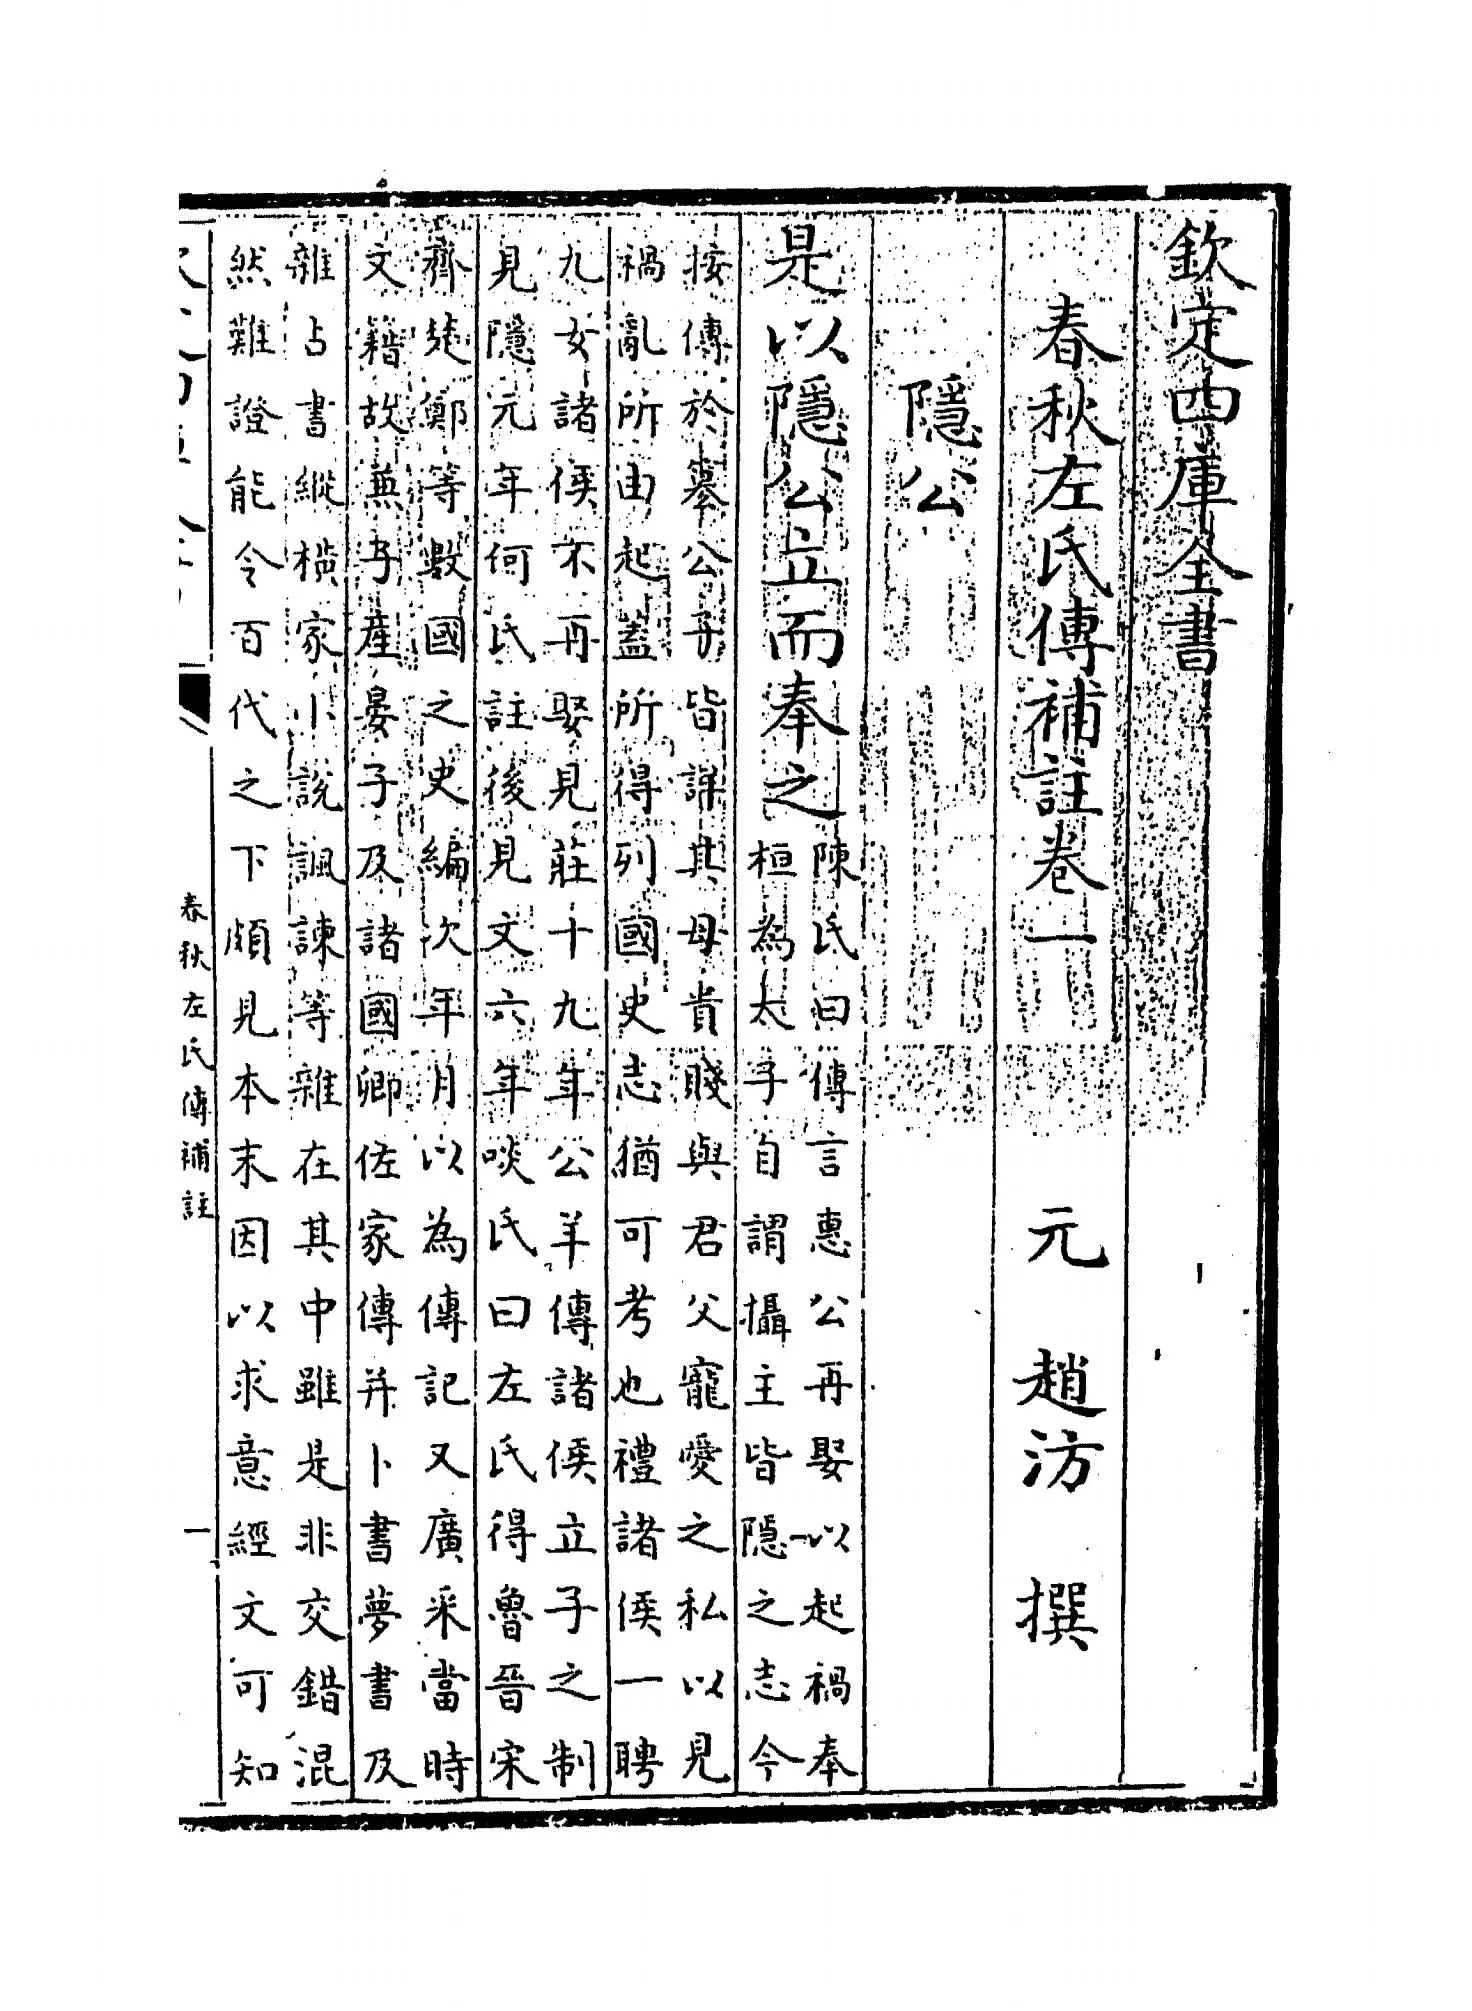 欽定四庫全書
春秋左氏傳補註卷一
元 趙汸 撰
隱公
是以隱公立而奉之
陳氏曰傳言惠公再娶以起禍奉
桓為太子自謂攝主皆隱之志今
按傳於羣公子皆詳其母貴賤與君父寵愛之私以見
禍亂所由起蓋所得列國史志猶可考也禮諸侯一聘
九女諸侯不再娶見莊十九年公羊傳諸侯立子之制
見隱元年何氏註後見文六年啖氏曰左氏得魯晉宋
齊楚鄭等數國之史編次年月以為傳記又廣采當時
文籍故兼子產晏子及諸國卿佐家傳并卜書夢書及
雜占書縱橫家小說諷諫等雜在其中雖是非交錯混
然難證能令百代之下頗見本末因以求意經文可知
春秋左氏傳補註
一